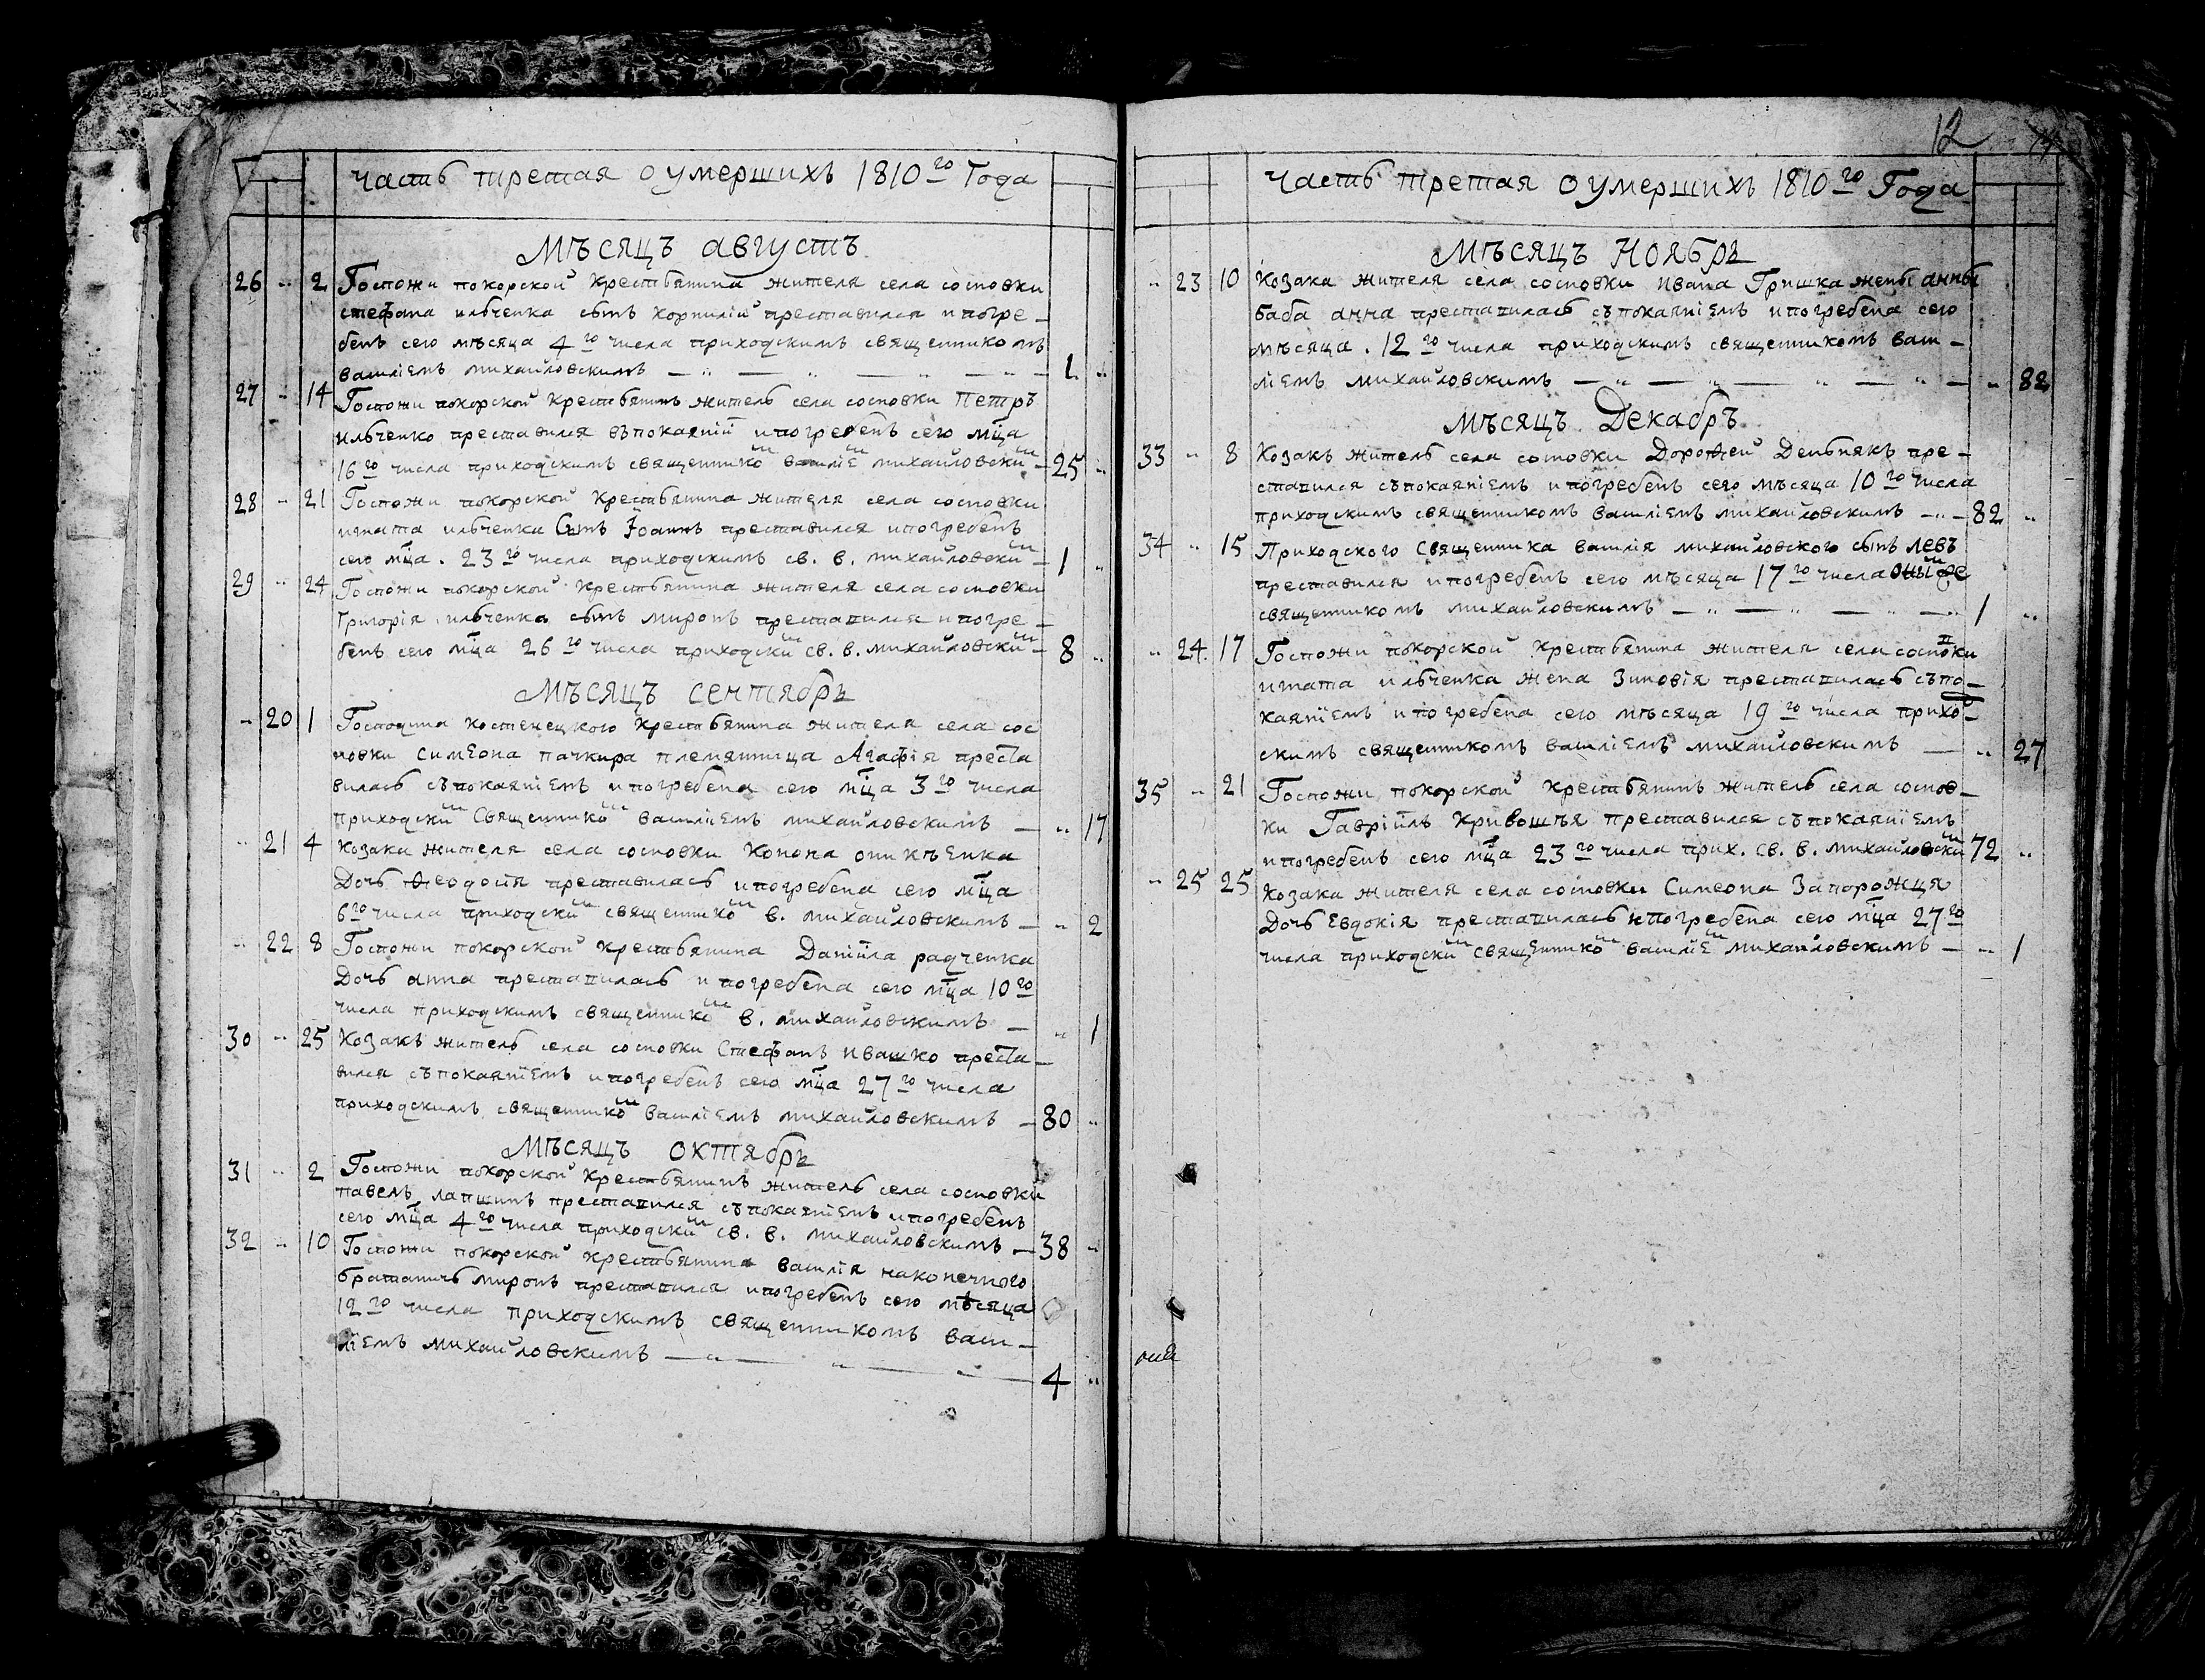 часть третая о умершихъ 1810го Года
Мѣсяцъ августъ
26 .. 2 Госпожи покорской крестьянина жителя села сосновки
стефана ильченка сынъ корнилій преставился и погре–
бенъ сего мѣсяца 4го числа приходскимъ священникомъ
василіемъ михайловскимъ — 1 ..
27 .. 14 Госпожи покорской крестьянинъ житель села сосновки Петръ
ильченко преставился въ покаяніи и погребенъ сего мца
16го числа приходскимъ священникомъ василіемъ михайловским – 25 ..
28 .. 21 Госпожи покорской крестьянина жителя села сосновки
игната ильченка Сынъ Іоаннъ преставился и погребенъ
сего мца. 23го числа приходскимъ св. в. михайловским – 1 ..
29 .. 24 Госпожи покорской крестьянина жителя села сосновки
Григорія ильченка сынъ миронъ преставился и погре–
бенъ сего мца 26го числа приходским св. в. михайловским – 8 ..
Мѣсяцъ сентябрь
.. 20 1 Господина костенецкого крестьянина жителя села сос
новки симеона пачкира племянница Агафія преста
вилась съ покаяніемъ и погребена сего мца 3го числа
приходским Священником василіемъ михайловскимъ — .. 17
.. 21 4 Козака жителя села сосновки Конона оникѣенка
Дочь Ѳеодосія преставилась и погребена сего мца
6го числа приходским священником в. михайловскимъ – .. 2
.. 22 8 Госпожи покорской крестьянина Даніила радченка
Дочь анна преставилась и погребена сего мца 10го
числа приходскимъ священником в. михайловскимъ – .. 1
30 .. 25 Козакъ житель села сосновки Стефанъ ивашко преста–
вился съ покаяніемъ и погребенъ сего мца 27го числа
приходскимъ священником василіемъ михайловскимъ – 80 ..
Мѣсяцъ октябрь
31 .. 2 Госпожи покорской крестьянинъ житель села сосновки
павелъ лапшинъ преставился съ покаяніемъ и погребенъ
сего мца 4го числа приходским св. в. михайловскимъ – 38 ..
32 .. 10 Госпожи покорской крестьянина василія наконечного
братаничъ миронъ преставился и погребенъ сего мѣсяца
12го числа приходскимъ священникомъ васи–
ліемъ михайловскимъ — 4 ..
12
часть третая о умершихъ 1810го Года
Мѣсяцъ Ноябрь
.. 23 10 Козака жителя села сосновки ивана Гришка жены анны
баба анна преставилась съ покаяніемъ и погребена сего
мѣсяца. 12го числа приходскимъ священникомъ васи–
ліемъ михайловскимъ — .. 82
Мѣсяцъ Декабрь
33 .. 8 Козакъ житель села сосновки Дорофей Деньнякъ пре–
ставился съ покаяніемъ и погребенъ сего мѣсяца 10го числа
приходскимъ священникомъ василіемъ михайловскимъ – 82 ..
34 .. 15 Приходского Священника василія михайловского сынъ левъ
преставился и погребенъ сего мѣсяца 17го числа оным же
священникомъ михайловскимъ — 1 ..
.. 24. 17 Госпожи покорской крестьянина жителя села сосновки
игната ильченка жена Зиновія преставилась съ по–
каяніемъ и погребена сего мѣсяца 19го числа приход–
скимъ священникомъ василіемъ михайловскимъ — .. 27
35 .. 21 Госпожи покорской крестьянинъ житель села соснов–
ки Гавріилъ Кривошѣя преставился съ покаяніемъ
и погребенъ сего мца 23го числа прих. св. в. михайловским 72 ..
.. 25 25 Козака жителя села сосновки Симеона Запорожця
Дочь Евдокія преставилась и погребена сего мца 27го
числа приходским священником василіем михайловскимъ – .. 1